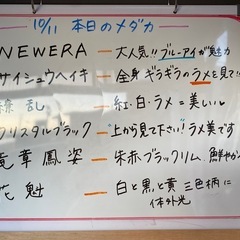 10/11 本日のメダカ
NEWERA — 大人気!! ブルーアイが魅力
サイシュウヘイキ — 全身ギラギラのラメを見て!!
繚乱 — 紅・白・ラメ=美しい
クリスタルブラック — 上から見て下さい! ラメ美です
竜章鳳姿 — 朱赤ブラックリム、鮮やか
花魁 — 白と黒と黄 三色柄に
体外光